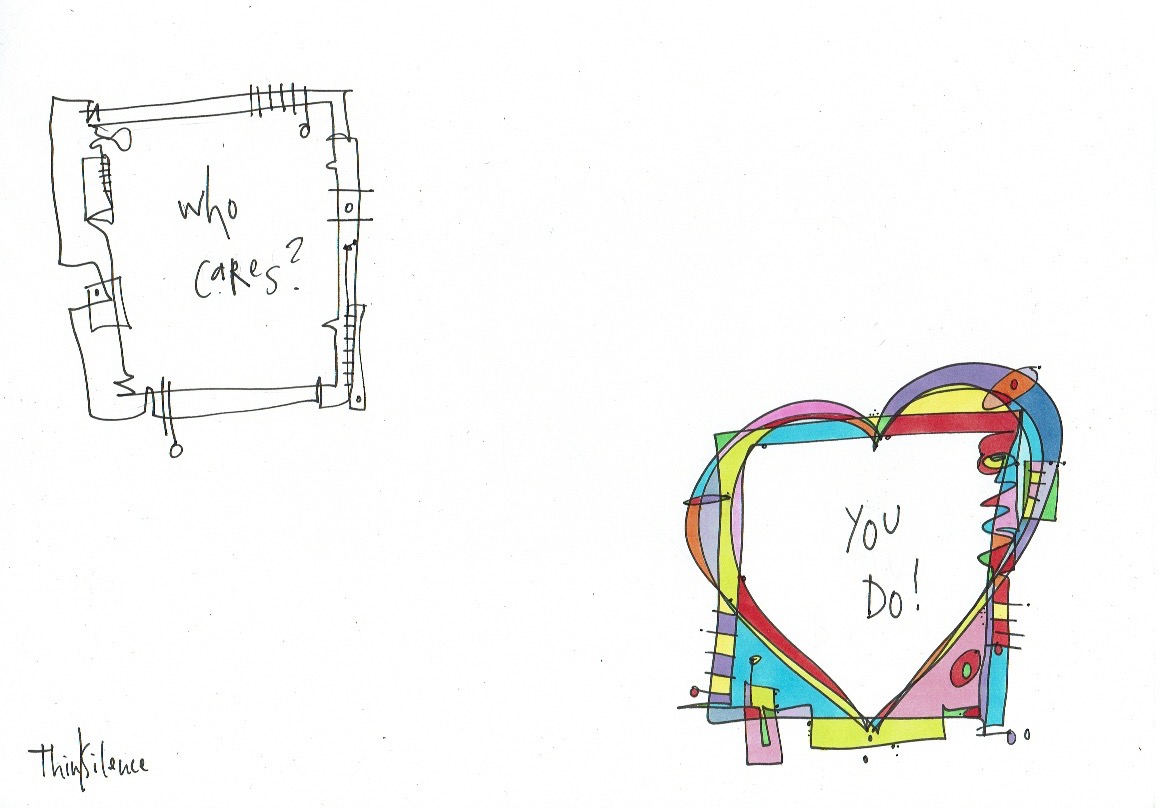 who
cares?
You
Do!
ThinkSilence